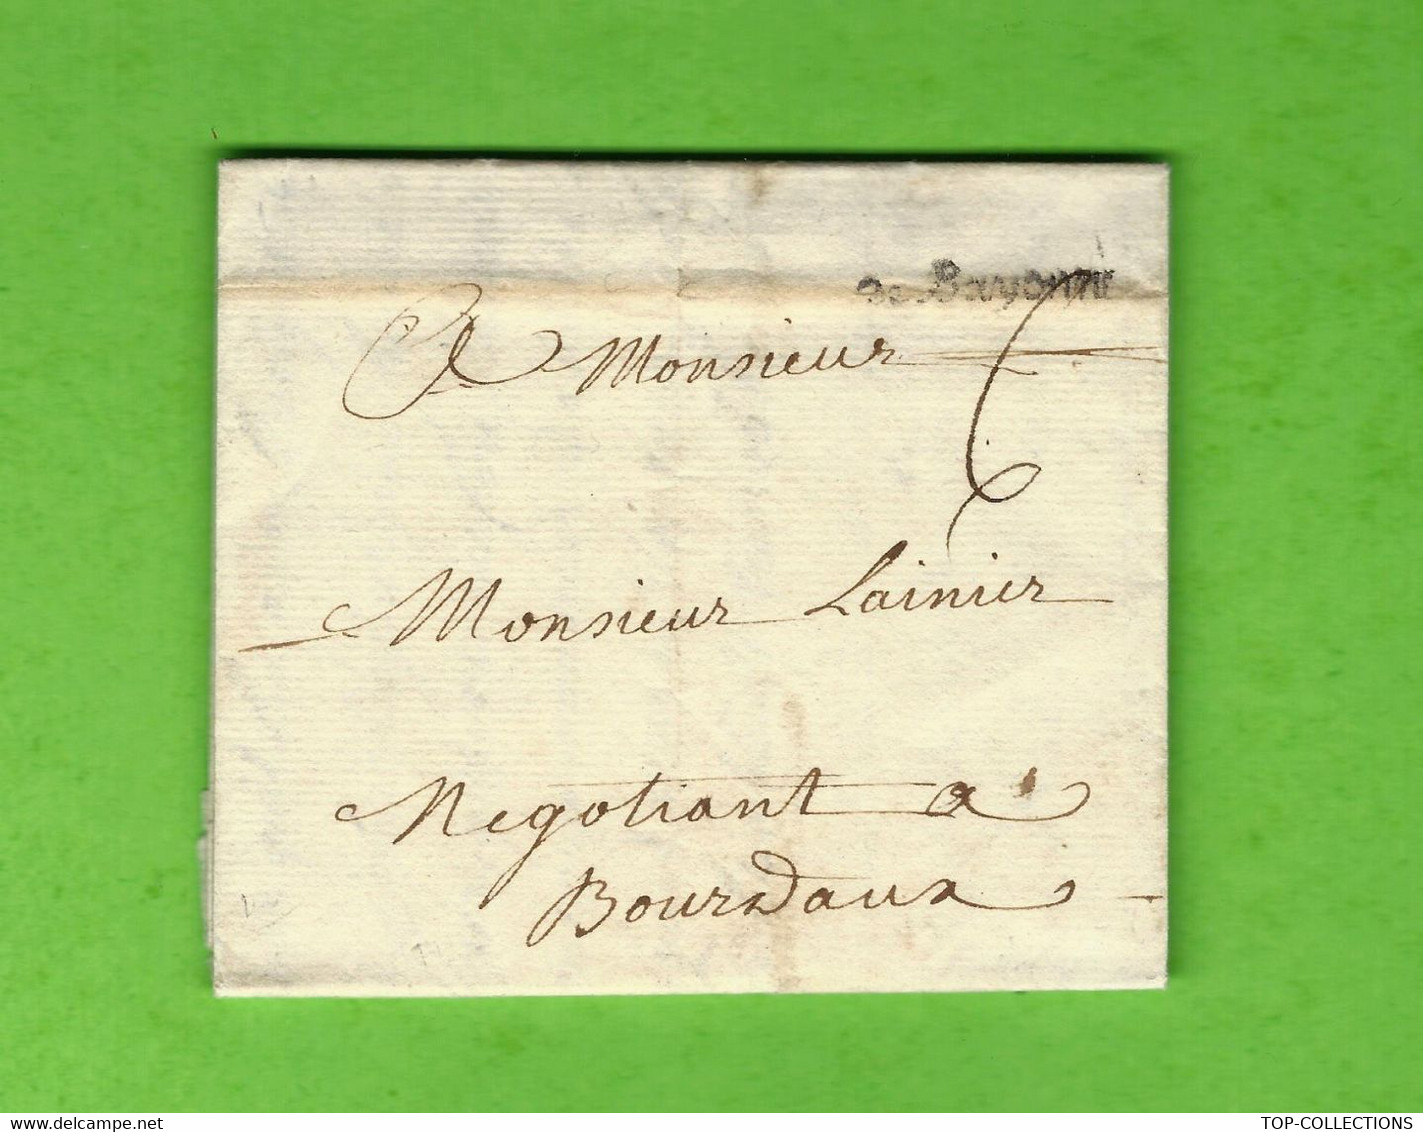 De Bayonne
A Monsieur
6
Monsieur Lainier
Negotiant a
Bourdaux
www.delcampe.net
TOP-COLLECTIONS